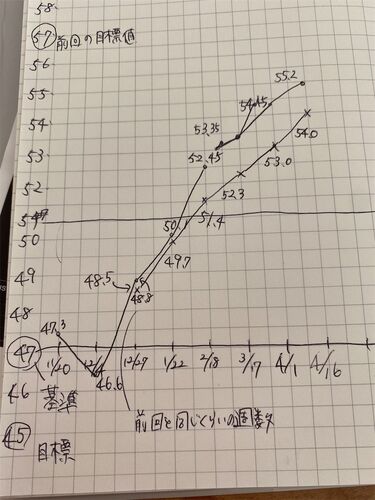 58
57 前回の目標値
56
55
55.2
54.45
54
53.35
54.0
53
52.45
53.0
52
52.3
51
51.4
50
50.1
49.7
49
48.5
48.8
48
47.3
47
11/20
12/27
1/22
2/18
3/17
4/1
4/16
46.6
46 基準
前回と同じくらいの週数
45
目標